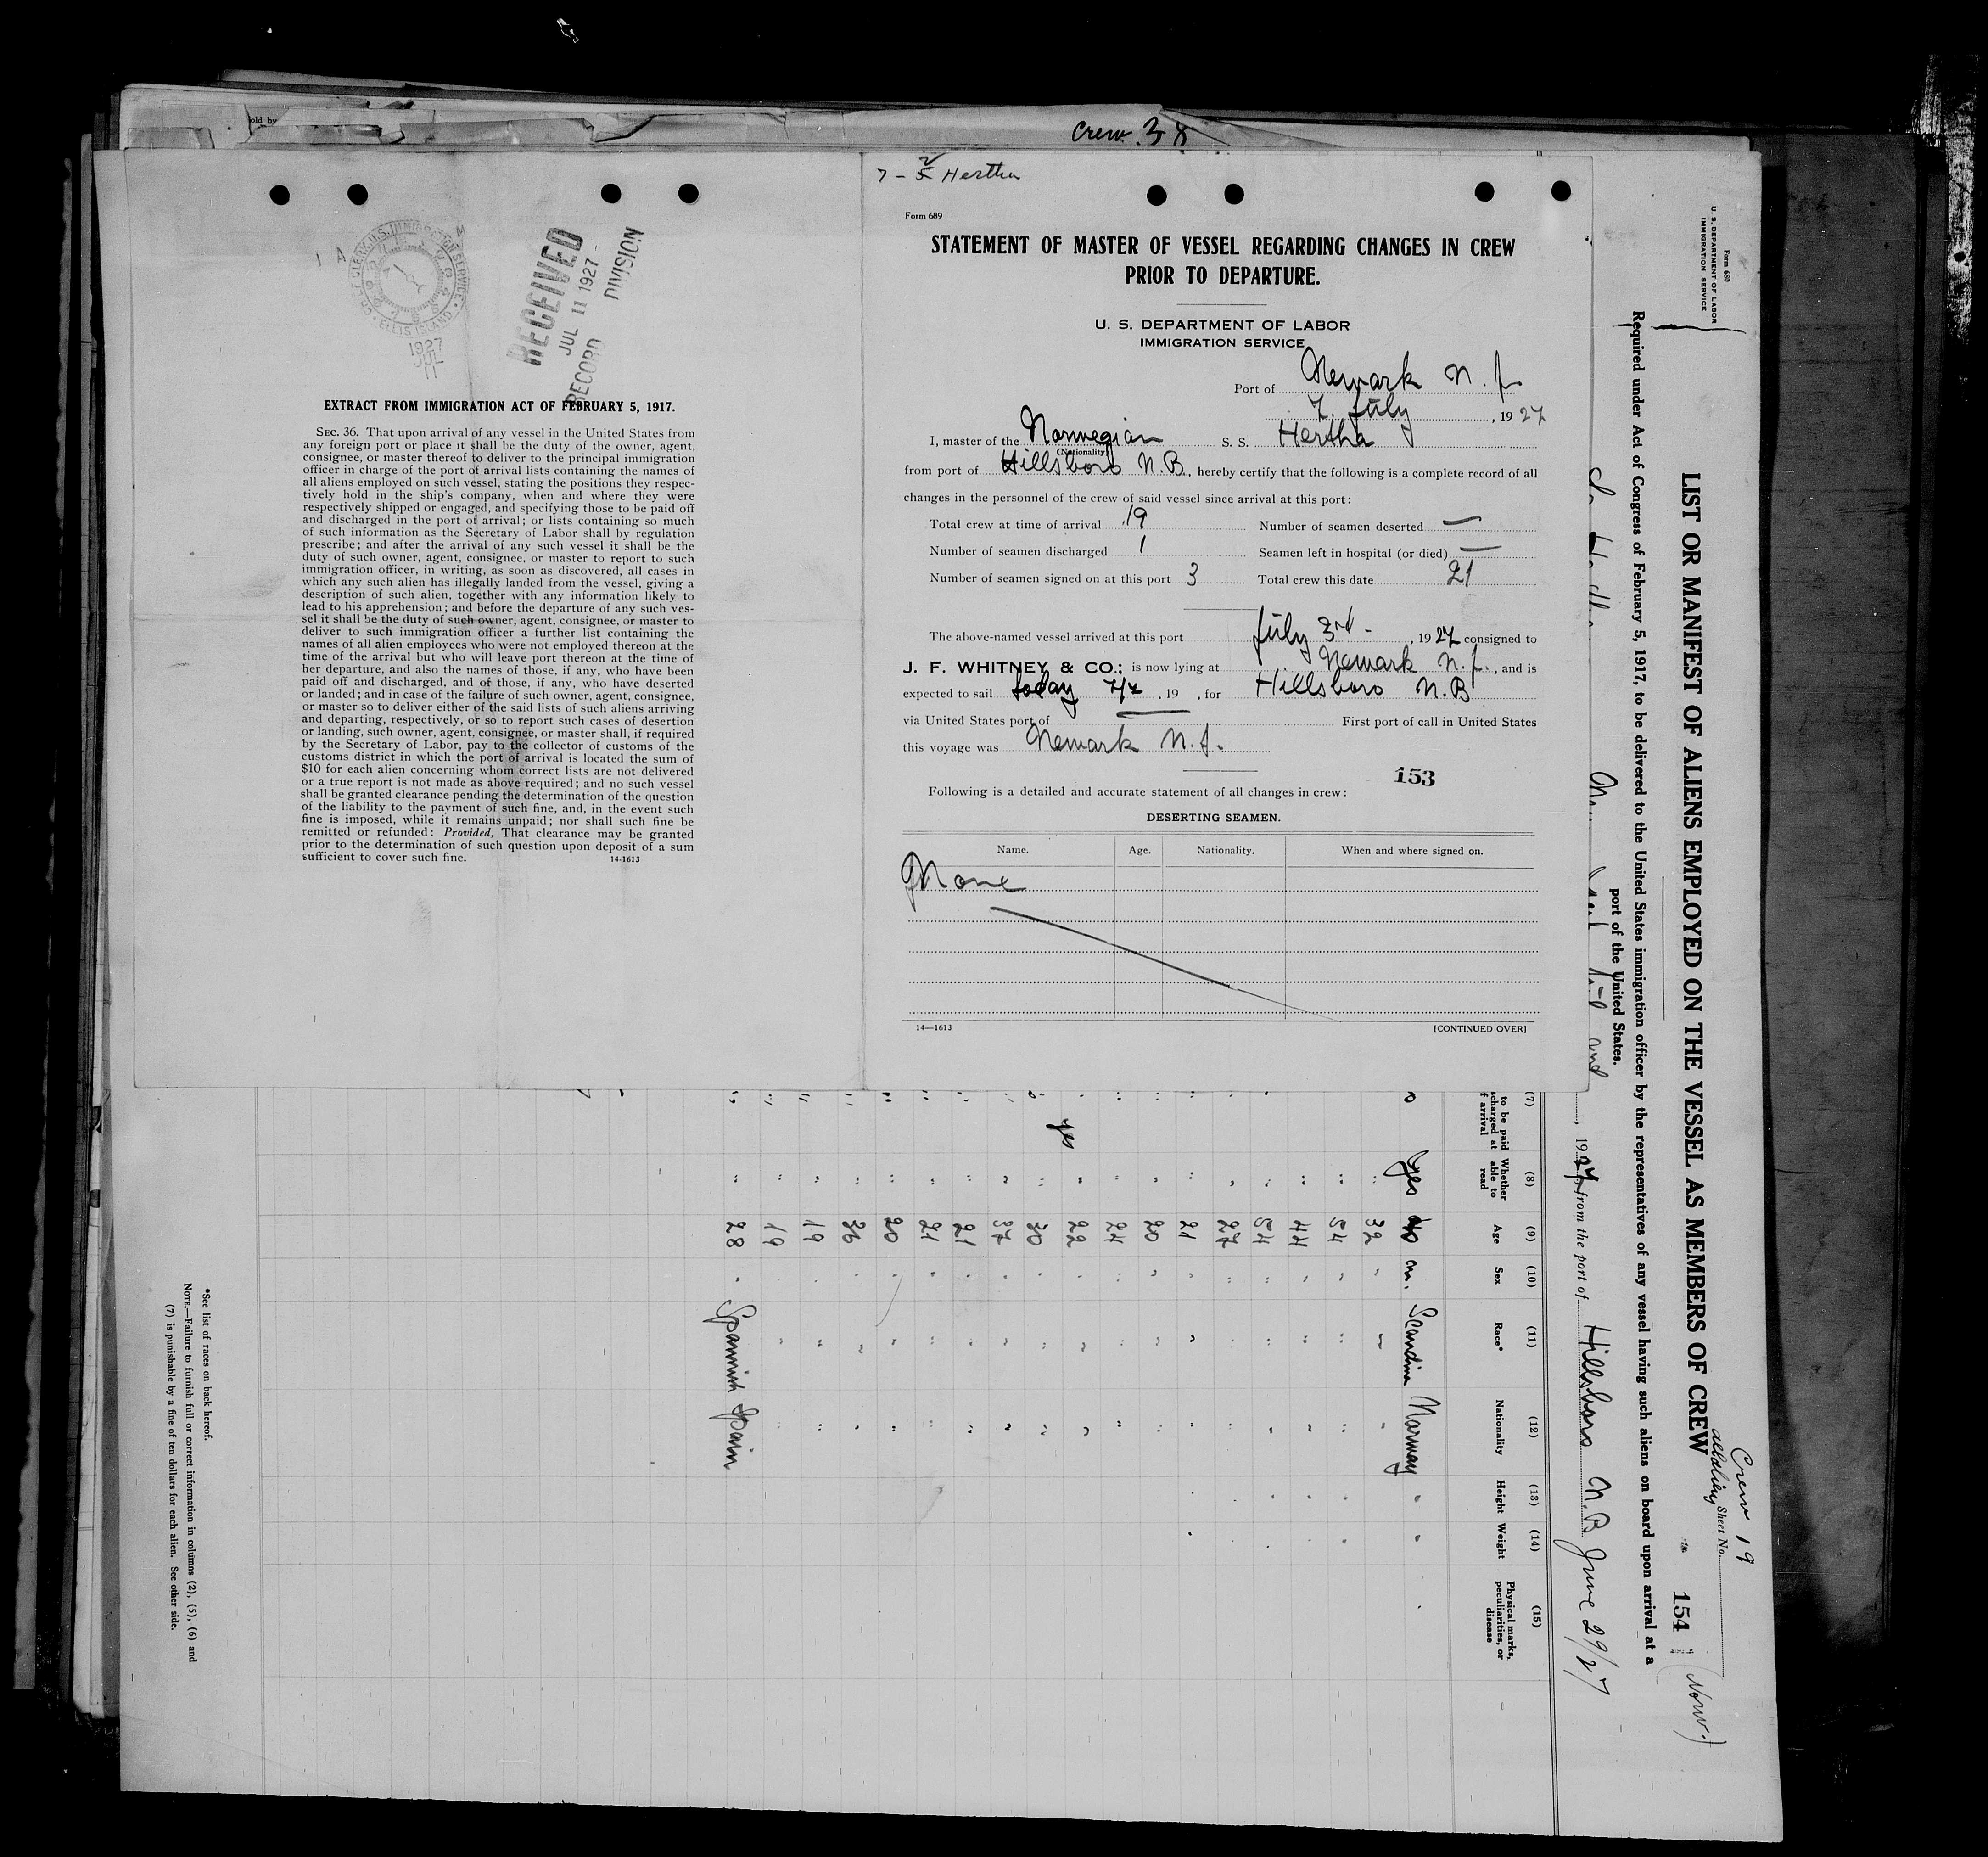 old by
Crew 38
7 - 5 Hertha
U.S. IMMIGRATION SERVICE
ELLIS ISLAND
1927
JUL
11
RECEIVED
JUL 11 1927
RECORD DIVISION
EXTRACT FROM IMMIGRATION ACT OF FEBRUARY 5, 1917.
SEC. 36. That upon arrival of any vessel in the United States from
any foreign port or place it shall be the duty of the owner, agent,
consignee, or master thereof to deliver to the principal immigration
officer in charge of the port of arrival lists containing the names of
all aliens employed on such vessel, stating the positions they respec-
tively hold in the ship's company, when and where they were
respectively shipped or engaged, and specifying those to be paid off
and discharged in the port of arrival; or lists containing so much
of such information as the Secretary of Labor shall by regulation
prescribe; and after the arrival of any such vessel it shall be the
duty of such owner, agent, consignee, or master to report to such
immigration officer, in writing, as soon as discovered, all cases in
which any such alien has illegally landed from the vessel, giving a
description of such alien, together with any information likely to
lead to his apprehension; and before the departure of any such ves-
sel it shall be the duty of such owner, agent, consignee, or master to
deliver to such immigration officer a further list containing the
names of all alien employees who were not employed thereon at the
time of the arrival but who will leave port thereon at the time of
her departure, and also the names of those, if any, who have been
paid off and discharged, and of those, if any, who have deserted
or landed; and in case of the failure of such owner, agent, consignee,
or master so to deliver either of the said lists of such aliens arriving
and departing, respectively, or so to report such cases of desertion
or landing, such owner, agent, consignee, or master shall, if required
by the Secretary of Labor, pay to the collector of customs of the
customs district in which the port of arrival is located the sum of
$10 for each alien concerning whom correct lists are not delivered
or a true report is not made as above required; and no such vessel
shall be granted clearance pending the determination of the question
of the liability to the payment of such fine, and, in the event such
fine is imposed, while it remains unpaid; nor shall such fine be
remitted or refunded: Provided, That clearance may be granted
prior to the determination of such question upon deposit of a sum
sufficient to cover such fine. 14-1613
Form 689
STATEMENT OF MASTER OF VESSEL REGARDING CHANGES IN CREW
PRIOR TO DEPARTURE.
U. S. DEPARTMENT OF LABOR
IMMIGRATION SERVICE
Port of Newark N.J.
7. July, 1927
I, master of the Norwegian S. S. Hertha
(Nationality)
from port of Hillsboro N.B., hereby certify that the following is a complete record of all
changes in the personnel of the crew of said vessel since arrival at this port:
Total crew at time of arrival 19 Number of seamen deserted —
Number of seamen discharged 1 Seamen left in hospital (or died) —
Number of seamen signed on at this port 3 Total crew this date 21
The above-named vessel arrived at this port July 3rd -, 1927 consigned to
J. F. WHITNEY & CO.; is now lying at Newark N.J., and is
expected to sail today 7/7, 19 , for Hillsboro N.B
via United States port of — First port of call in United States
this voyage was Newark N.J.
153
Following is a detailed and accurate statement of all changes in crew:
DESERTING SEAMEN.
Name. Age. Nationality. When and where signed on.
None
14—1613 [CONTINUED OVER]
Form 680
U. S. DEPARTMENT OF LABOR
IMMIGRATION SERVICE
Crew 19
Sheet No.
LIST OR MANIFEST OF ALIENS EMPLOYED ON THE VESSEL AS MEMBERS OF CREW
154
(Norw.)
Required under Act of Congress of February 5, 1917, to be delivered to the United States immigration officer by the representatives of any vessel having such aliens on board upon arrival at a
port of the United States.
, 1927, from the port of Hillsboro N.B June 29/27
(7) (8) (9) (10) (11) (12) (13) (14) (15)
to be paid
scharged at
f arrival
Whether
able to
read
Age
Sex
Race*
Nationality
Height
Weight
Physical marks,
peculiarities, or
disease
yes 40 m. Scandina Norway
" 32 " " "
" 54 " " "
" 44 " " "
" 54 " " "
" 27 " " "
" 21 " " "
" 20 " " "
" 24 " " "
yes " 22 " " "
" 30 " " "
" 37 " " "
" 21 " " "
" 21 " " "
" 20 " " "
" 36 " " "
" 19 " " "
" 19 " " "
" 28 " Spannish Spain
*See list of races on back hereof.
NOTE.—Failure to furnish full or correct information in columns (2), (5), (6) and
(7) is punishable by a fine of ten dollars for each alien. See other side.